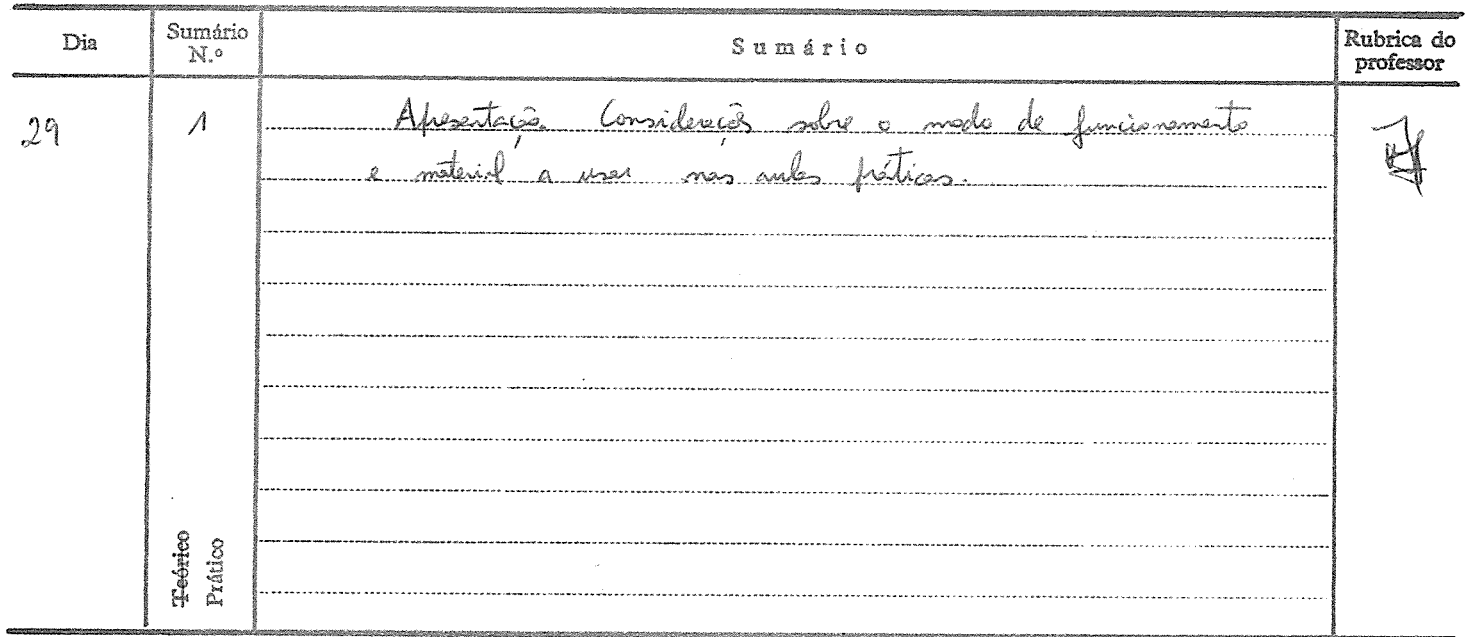 Dia
Sumário
N.º
Sumário
Rubrica do
professor
29
1
Apresentação. Considerações sobre o modo de funcionamento
e material a usar nas aulas práticas.
Teórico
Prático